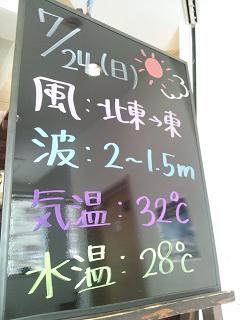 7/24(日)
風:北東→東
波:2~1.5m
気温:32℃
水温:28℃